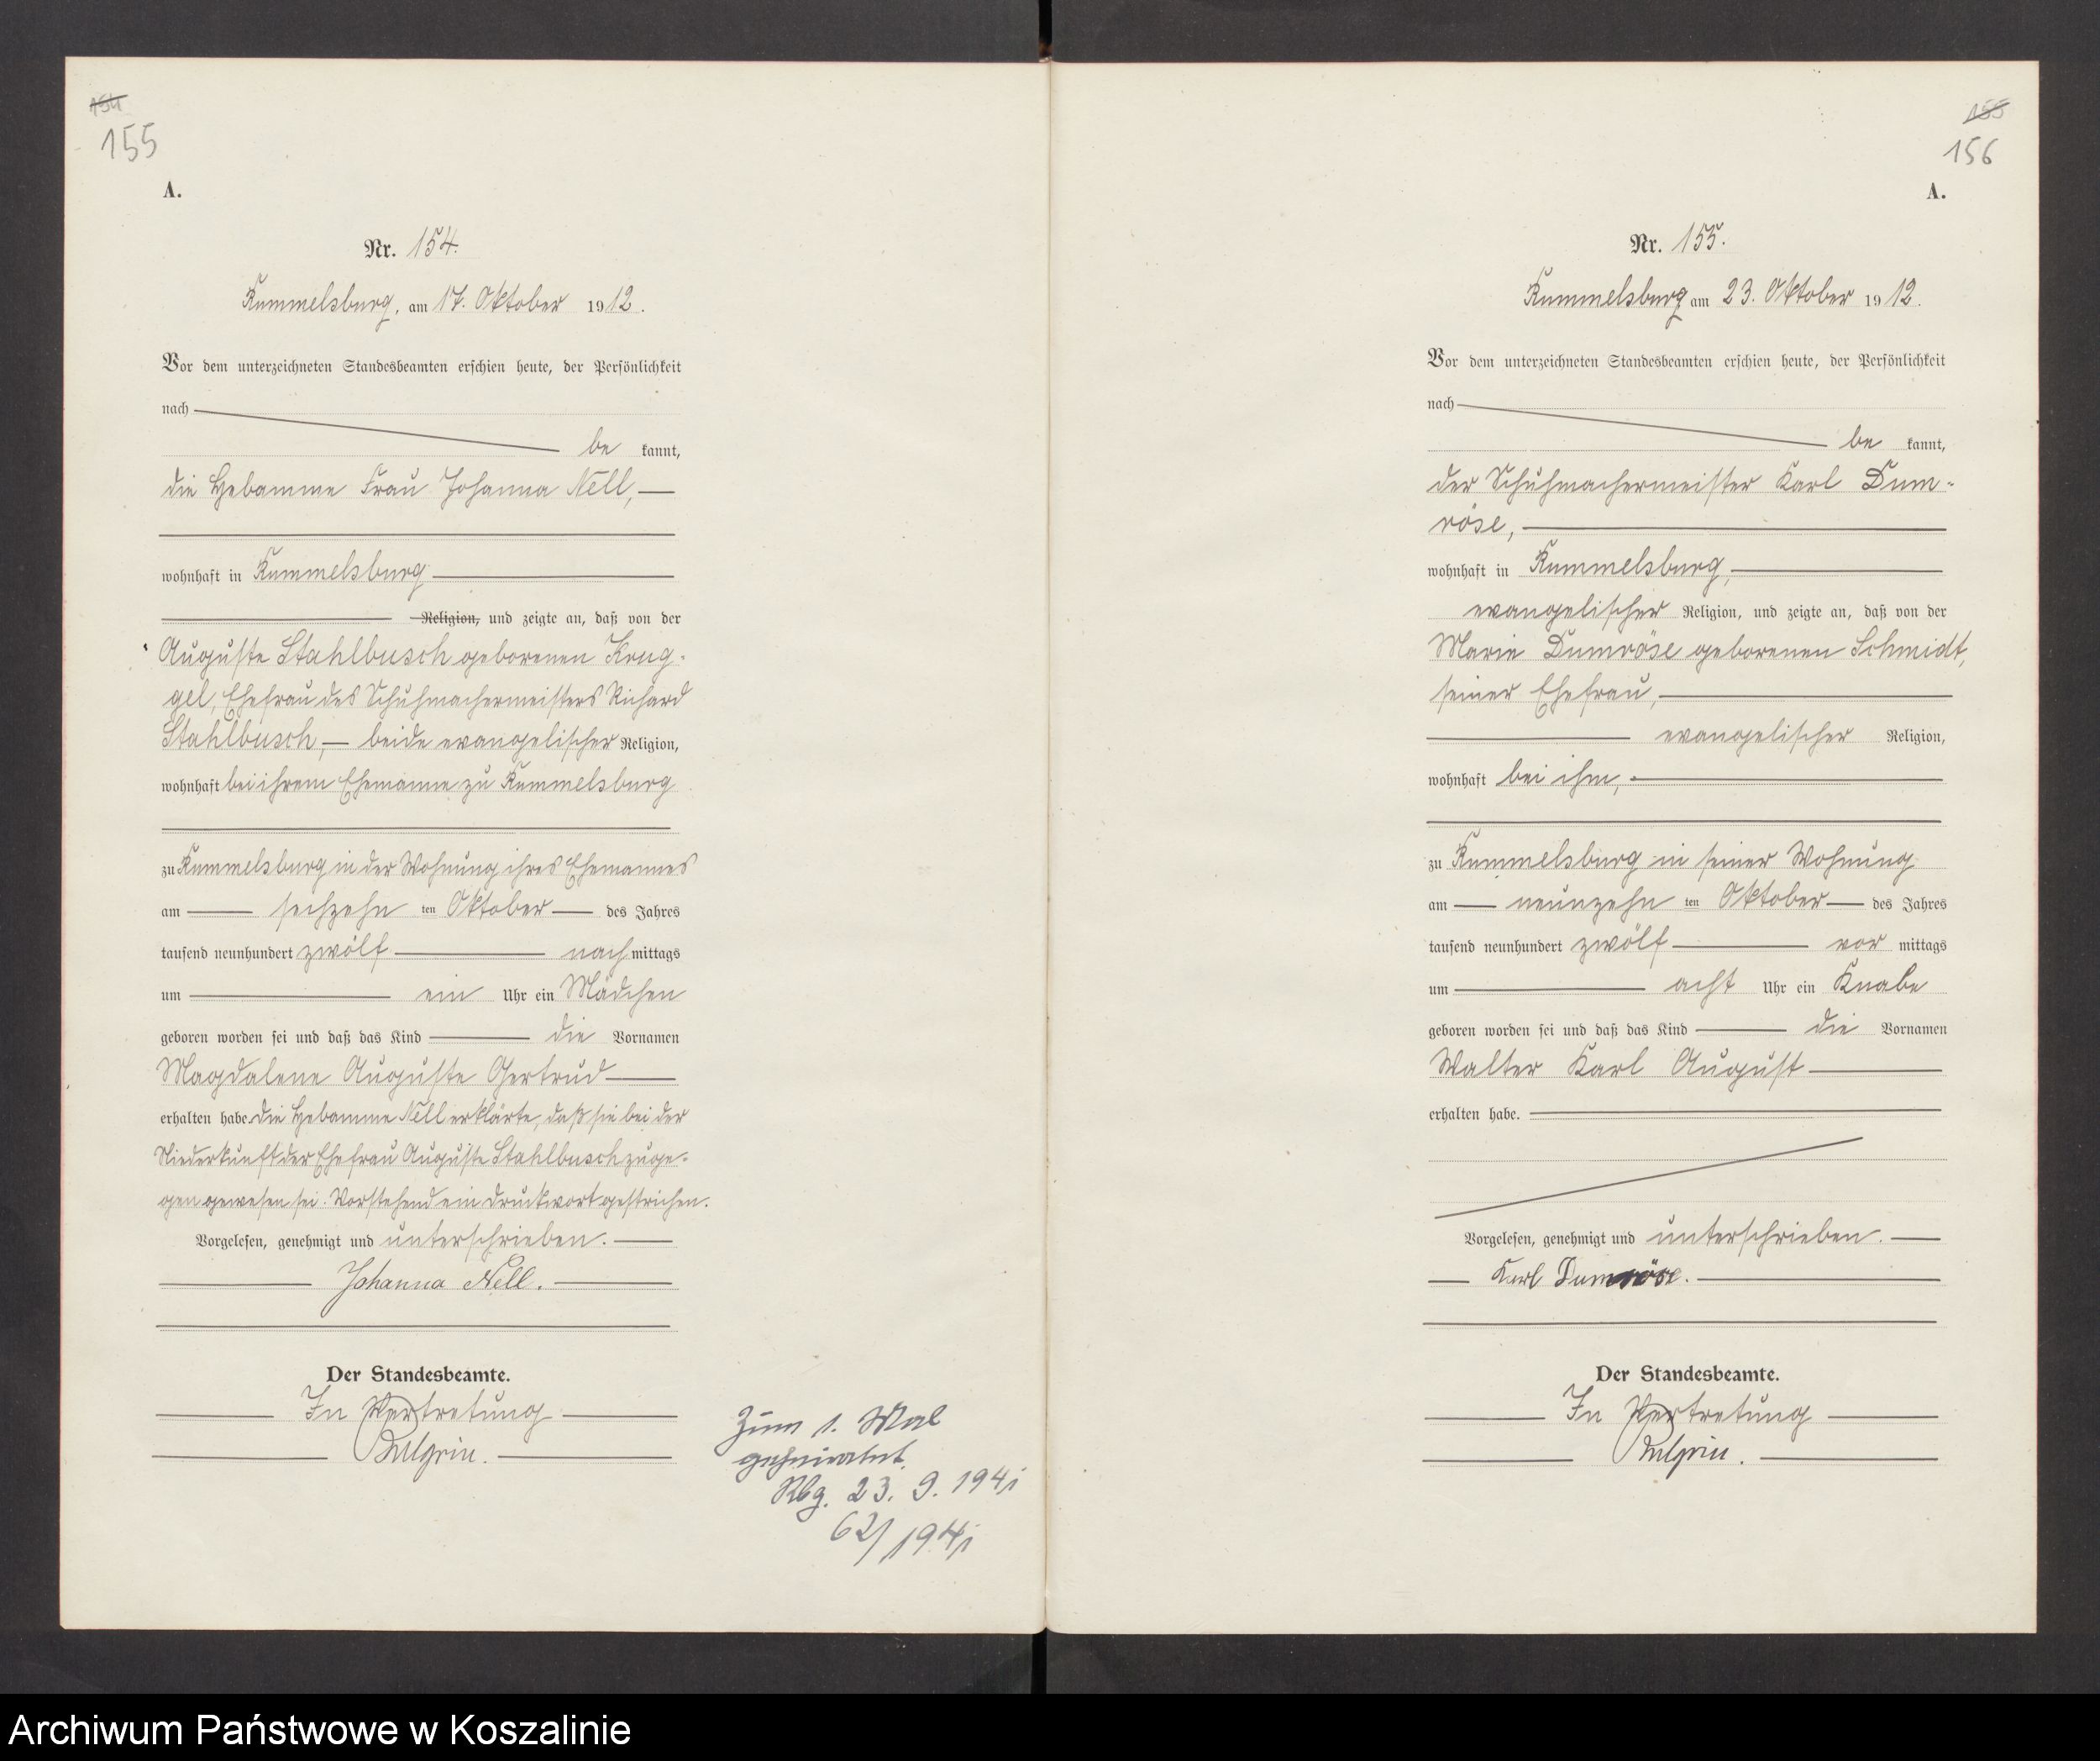 154
155
A.
Nr. 154.
Rummelsburg, am 17. Oktober 1912.
Vor dem unterzeichneten Standesbeamten erschien heute, der Persönlichkeit
nach
be kannt,
die Hebamme Frau Johanna Nell,
wohnhaft in Rummelsburg
Religion, und zeigte an, daß von der
Auguste Stahlbusch geborenen Krug-
gel, Ehefrau des Schuhmachermeisters Richard
Stahlbusch, beide evangelischer Religion,
wohnhaft bei ihrem Ehemanne zu Rummelsburg
zu Rummelsburg in der Wohnung ihres Ehemannes
am sechzehn ten Oktober des Jahres
tausend neunhundert zwölf nach mittags
um ein Uhr ein Mädchen
geboren worden sei und daß das Kind die Vornamen
Magdalene Auguste Gertrud
erhalten habe. Die Hebamme Nell erklärte, daß sie bei der
Niederkunft der Ehefrau Auguste Stahlbusch zuge-
gen gewesen sei. Vorstehend ein Druckwort gestrichen.
Vorgelesen, genehmigt und unterschrieben.
Johanna Nell.
Der Standesbeamte.
In Vertretung
Zum 1. Mal
geheiratet.
Rbg. 23. 9. 1941
62/1941
155
156
A.
Nr. 155.
Rummelsburg am 23. Oktober 1912.
Vor dem unterzeichneten Standesbeamten erschien heute, der Persönlichkeit
nach
be kannt,
der Schuhmachermeister Karl Dum-
röse,
wohnhaft in Rummelsburg,
evangelischer Religion, und zeigte an, daß von der
Marie Dumröse geborenen Schmidt,
seiner Ehefrau,
evangelischer Religion,
wohnhaft bei ihm,
zu Rummelsburg in seiner Wohnung
am neunzehn ten Oktober des Jahres
tausend neunhundert zwölf vor mittags
um acht Uhr ein Knabe
geboren worden sei und daß das Kind die Vornamen
Walter Karl August
erhalten habe.
Vorgelesen, genehmigt und unterschrieben.
Karl Dumröse.
Der Standesbeamte.
In Vertretung
Archiwum Państwowe w Koszalinie